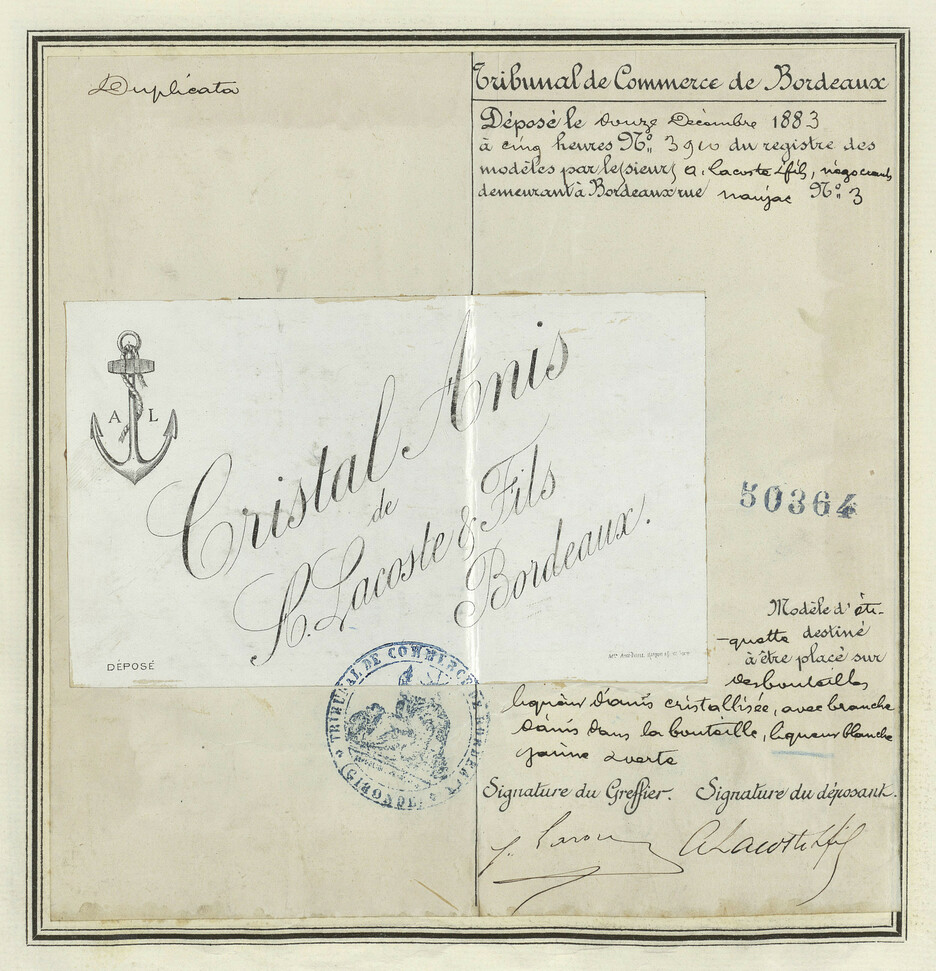 Duplicata
Tribunal de Commerce de Bordeaux
Déposé le douze Décembre 1883
à cinq heures No. 3910 du registre des
modèles par le(sieur) A. Lacoste & fils, négociants
demeurant à Bordeaux rue naujac No. 3
A L
Cristal Anis
de
A. Lacoste & Fils
Bordeaux.
DÉPOSÉ
50364
Modèle d'éti-
-quette destiné
à être placé sur
des bouteilles
liqueur d'anis cristallisée, avec branche
d'anis dans la bouteille, liqueur blanche
jaune & verte
TRIBUNAL DE COMMERCE DE BORDEAUX
(GIRONDE)
Signature du Greffier. Signature du déposant.
A Lacoste & fils